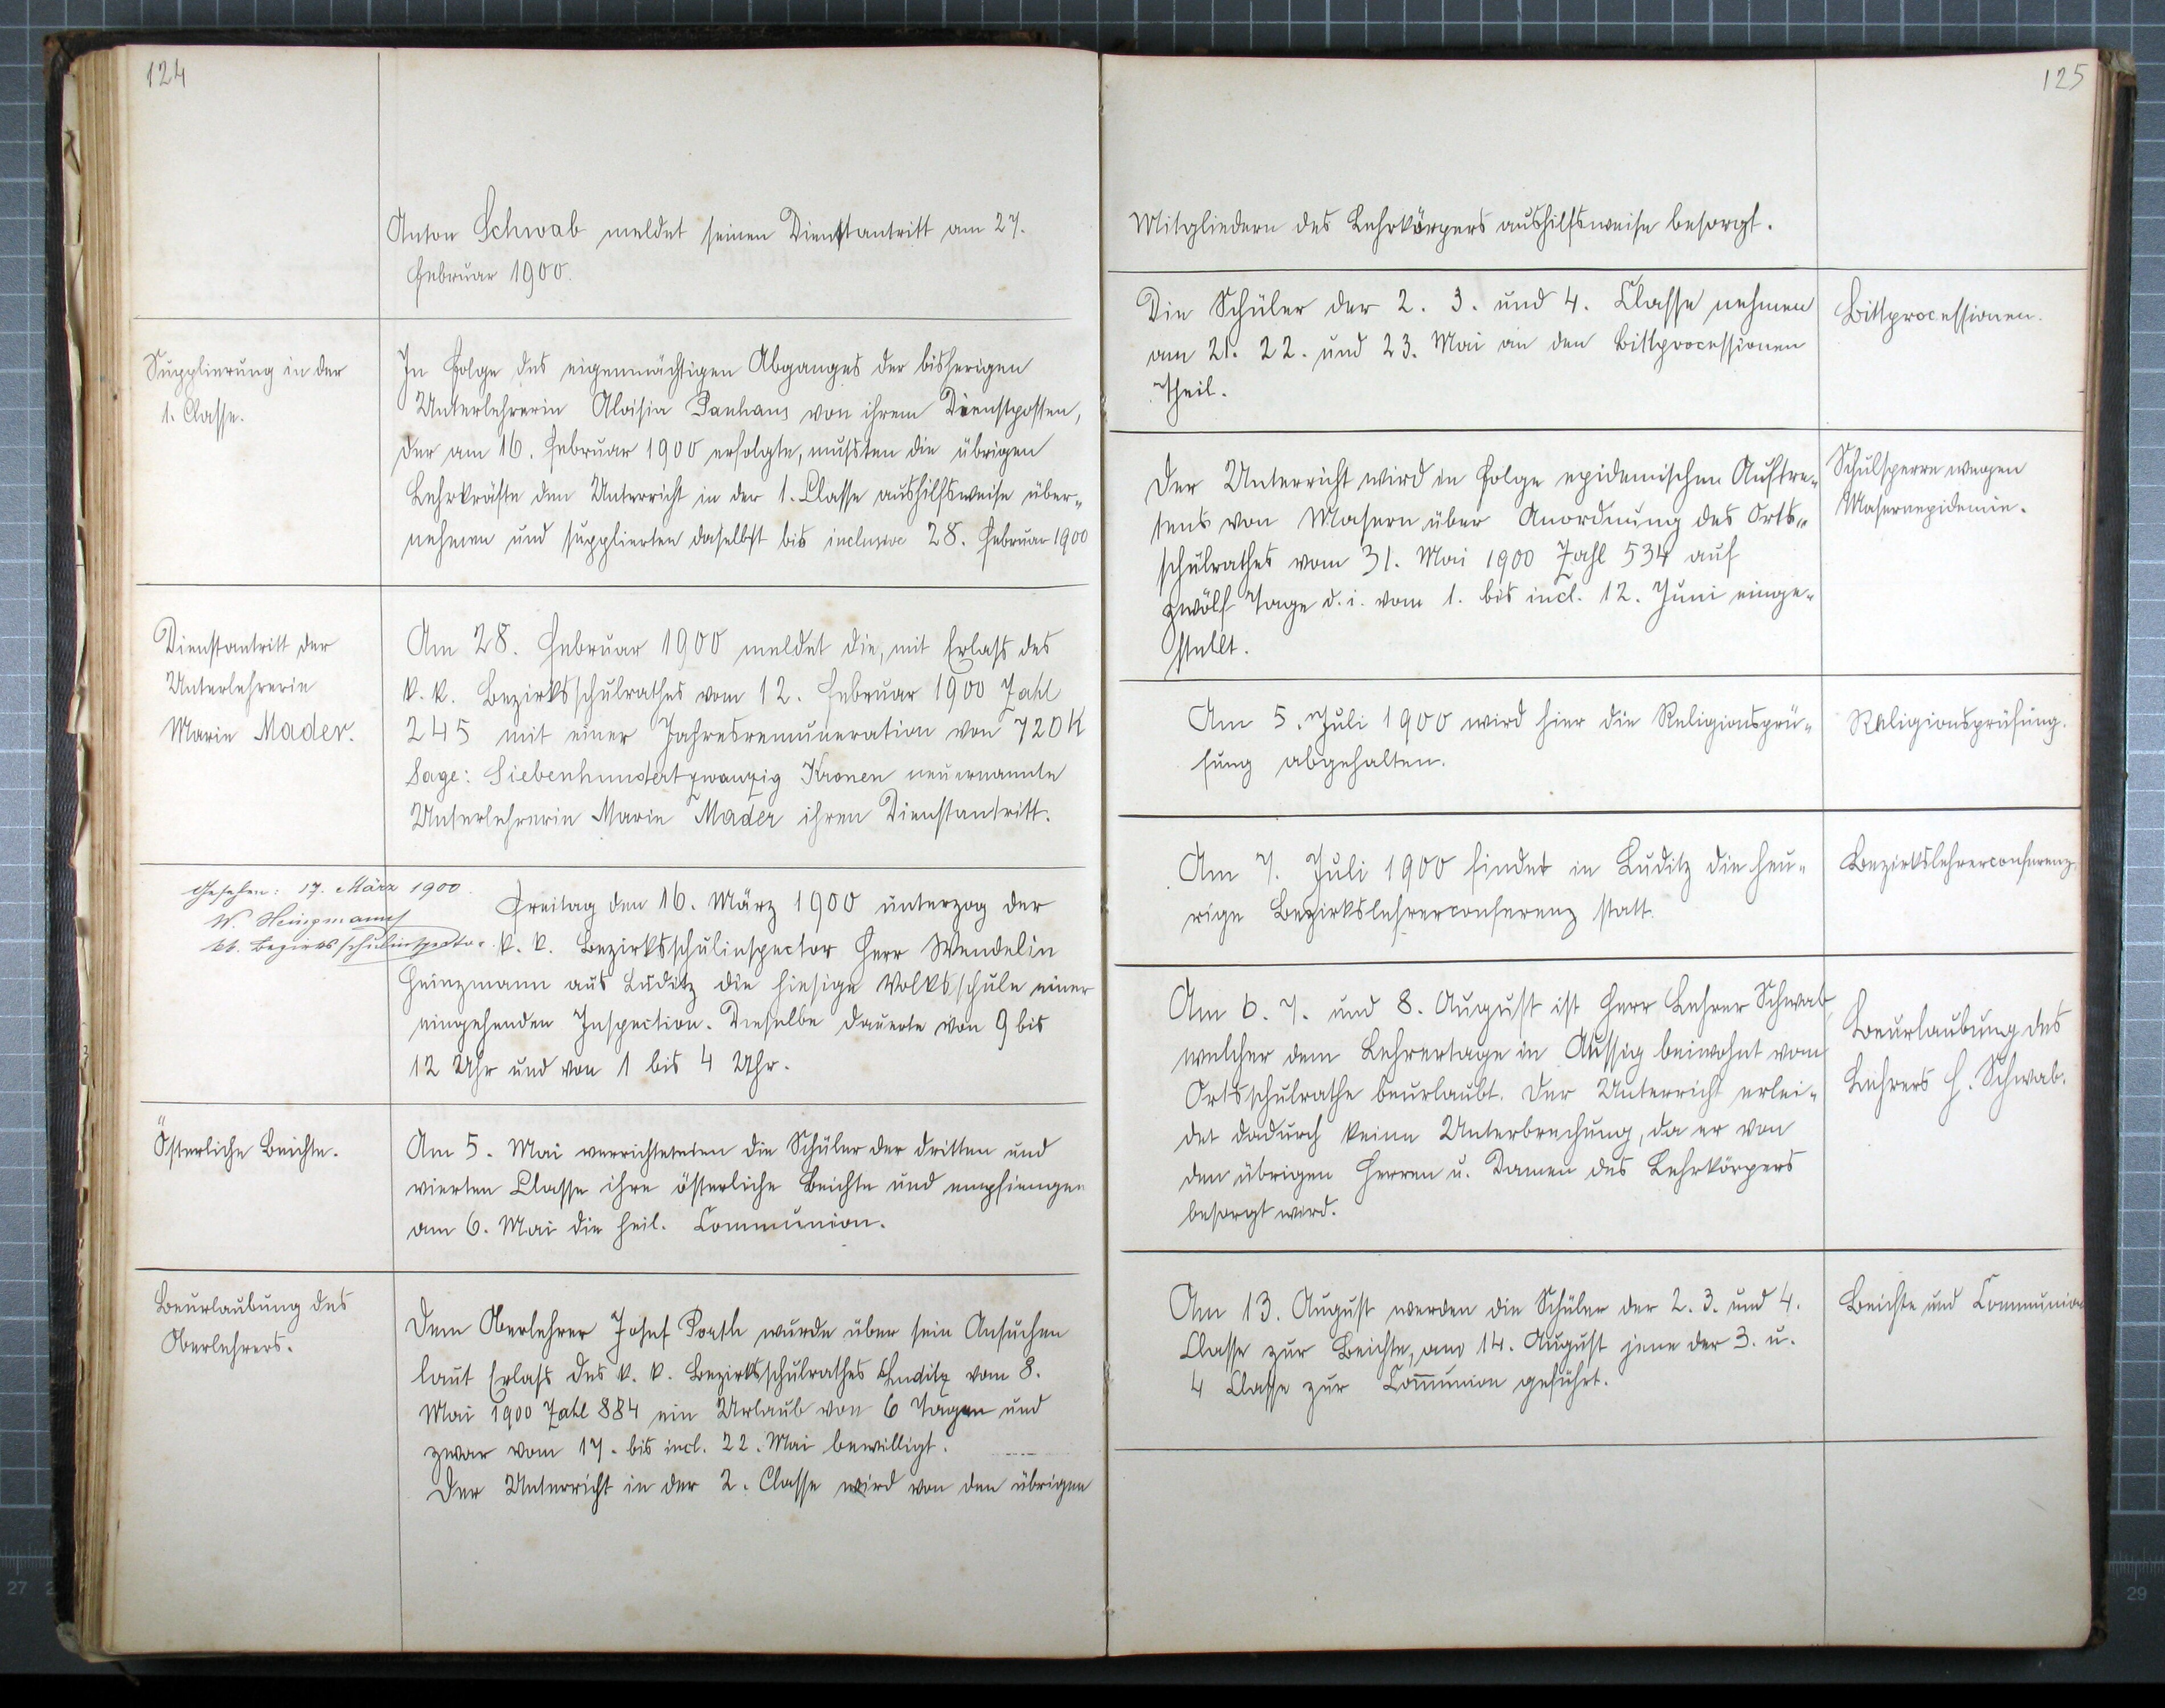 124
Anton Schwab meldet seinen Dienstantritt am 27.
Februar 1900.
Supplierung in der
1. Classe.
In Folge des eigenmächtigen Abganges der bisherigen
Unterlehrerin Aloisia Panhans von ihrem Dienstposten,
der am 16. Februar 1900 erfolgte, mussten die übrigen
Lehrkräfte den Unterricht in der 1. Classe aushilfsweise über-
nehmen und supplierten daselbst bis inclusive 28. Februar 1900
Dienstantritt der
Unterlehrerin
Marie Mader.
Am 28. Februar 1900 meldet die, mit Erlass des
k. k. Bezirksschulrathes vom 12. Februar 1900 Zahl
245 mit einer Jahresremuneration von 720 K
Sage: Siebenhundertzwanzig Kronen neuernannte
Unterlehrerin Marie Mader ihren Dienstantritt.
Gesehen: 17. März 1900.
W. Heinzmann
kk. Bezirksschulinspector.
Freitag den 16. März 1900 unterzog der
k. k. Bezirksschulinspector Herr Wendelin
Heinzmann aus Luditz die hiesige Volksschule einer
eingehenden Inspection. Dieselbe dauerte von 9 bis
12 Uhr und von 1 bis 4 Uhr.
Österliche Beichte.
Am 5. Mai verrichteten die Schüler der dritten und
vierten Classe ihre österliche Beichte und empfiengen
am 6. Mai die heil. Communion.
Beurlaubung des
Oberlehrers.
Dem Oberlehrer Josef Porth wurde über sein Ansuchen
laut Erlass des k. k. Bezirksschulrathes Luditz vom 8.
Mai 1900 Zahl 884 ein Urlaub von 6 Tagen und
zwar vom 17. bis incl. 22. Mai bewilligt.
Der Unterricht in der 2. Classe wird von den übrigen
125
Mitgliedern des Lehrkörpers aushilfsweise besorgt.
Die Schüler der 2. 3. und 4. Classe nehmen
am 21. 22. und 23. Mai an den Bittprocessionen
Theil.
Bittprocessionen.
Der Unterricht wird in Folge epidemischen Auftre-
tens von Masern über Anordnung des Orts-
schulrathes vom 31. Mai 1900 Zahl 534 auf
zwölf Tage d. i. vom 1. bis incl. 12. Juni einge-
stellt.
Schulsperre wegen
Masernepidemie.
Am 5. Juli 1900 wird hier die Religionsprü-
fung abgehalten.
Religionsprüfung.
Am 7. Juli 1900 findet in Luditz die heu-
rige Bezirkslehrerconferenz statt.
Bezirkslehrerconferenz.
Am 6. 7. und 8. August ist Herr Lehrer Schwab,
welcher dem Lehrertage in Aussig beiwohnt vom
Ortsschulrathe beurlaubt. Der Unterricht erlei-
det dadurch keine Unterbrechung, da er von
den übrigen Herren u. Damen des Lehrkörpers
besorgt wird.
Beurlaubung des
Lehrers H. Schwab.
Am 13. August werden die Schüler der 2. 3. und 4.
Classe zur Beichte, am 14. August jene der 3. u.
4 Classe zur Com̄union geführt.
Beichte und Communion
27
29